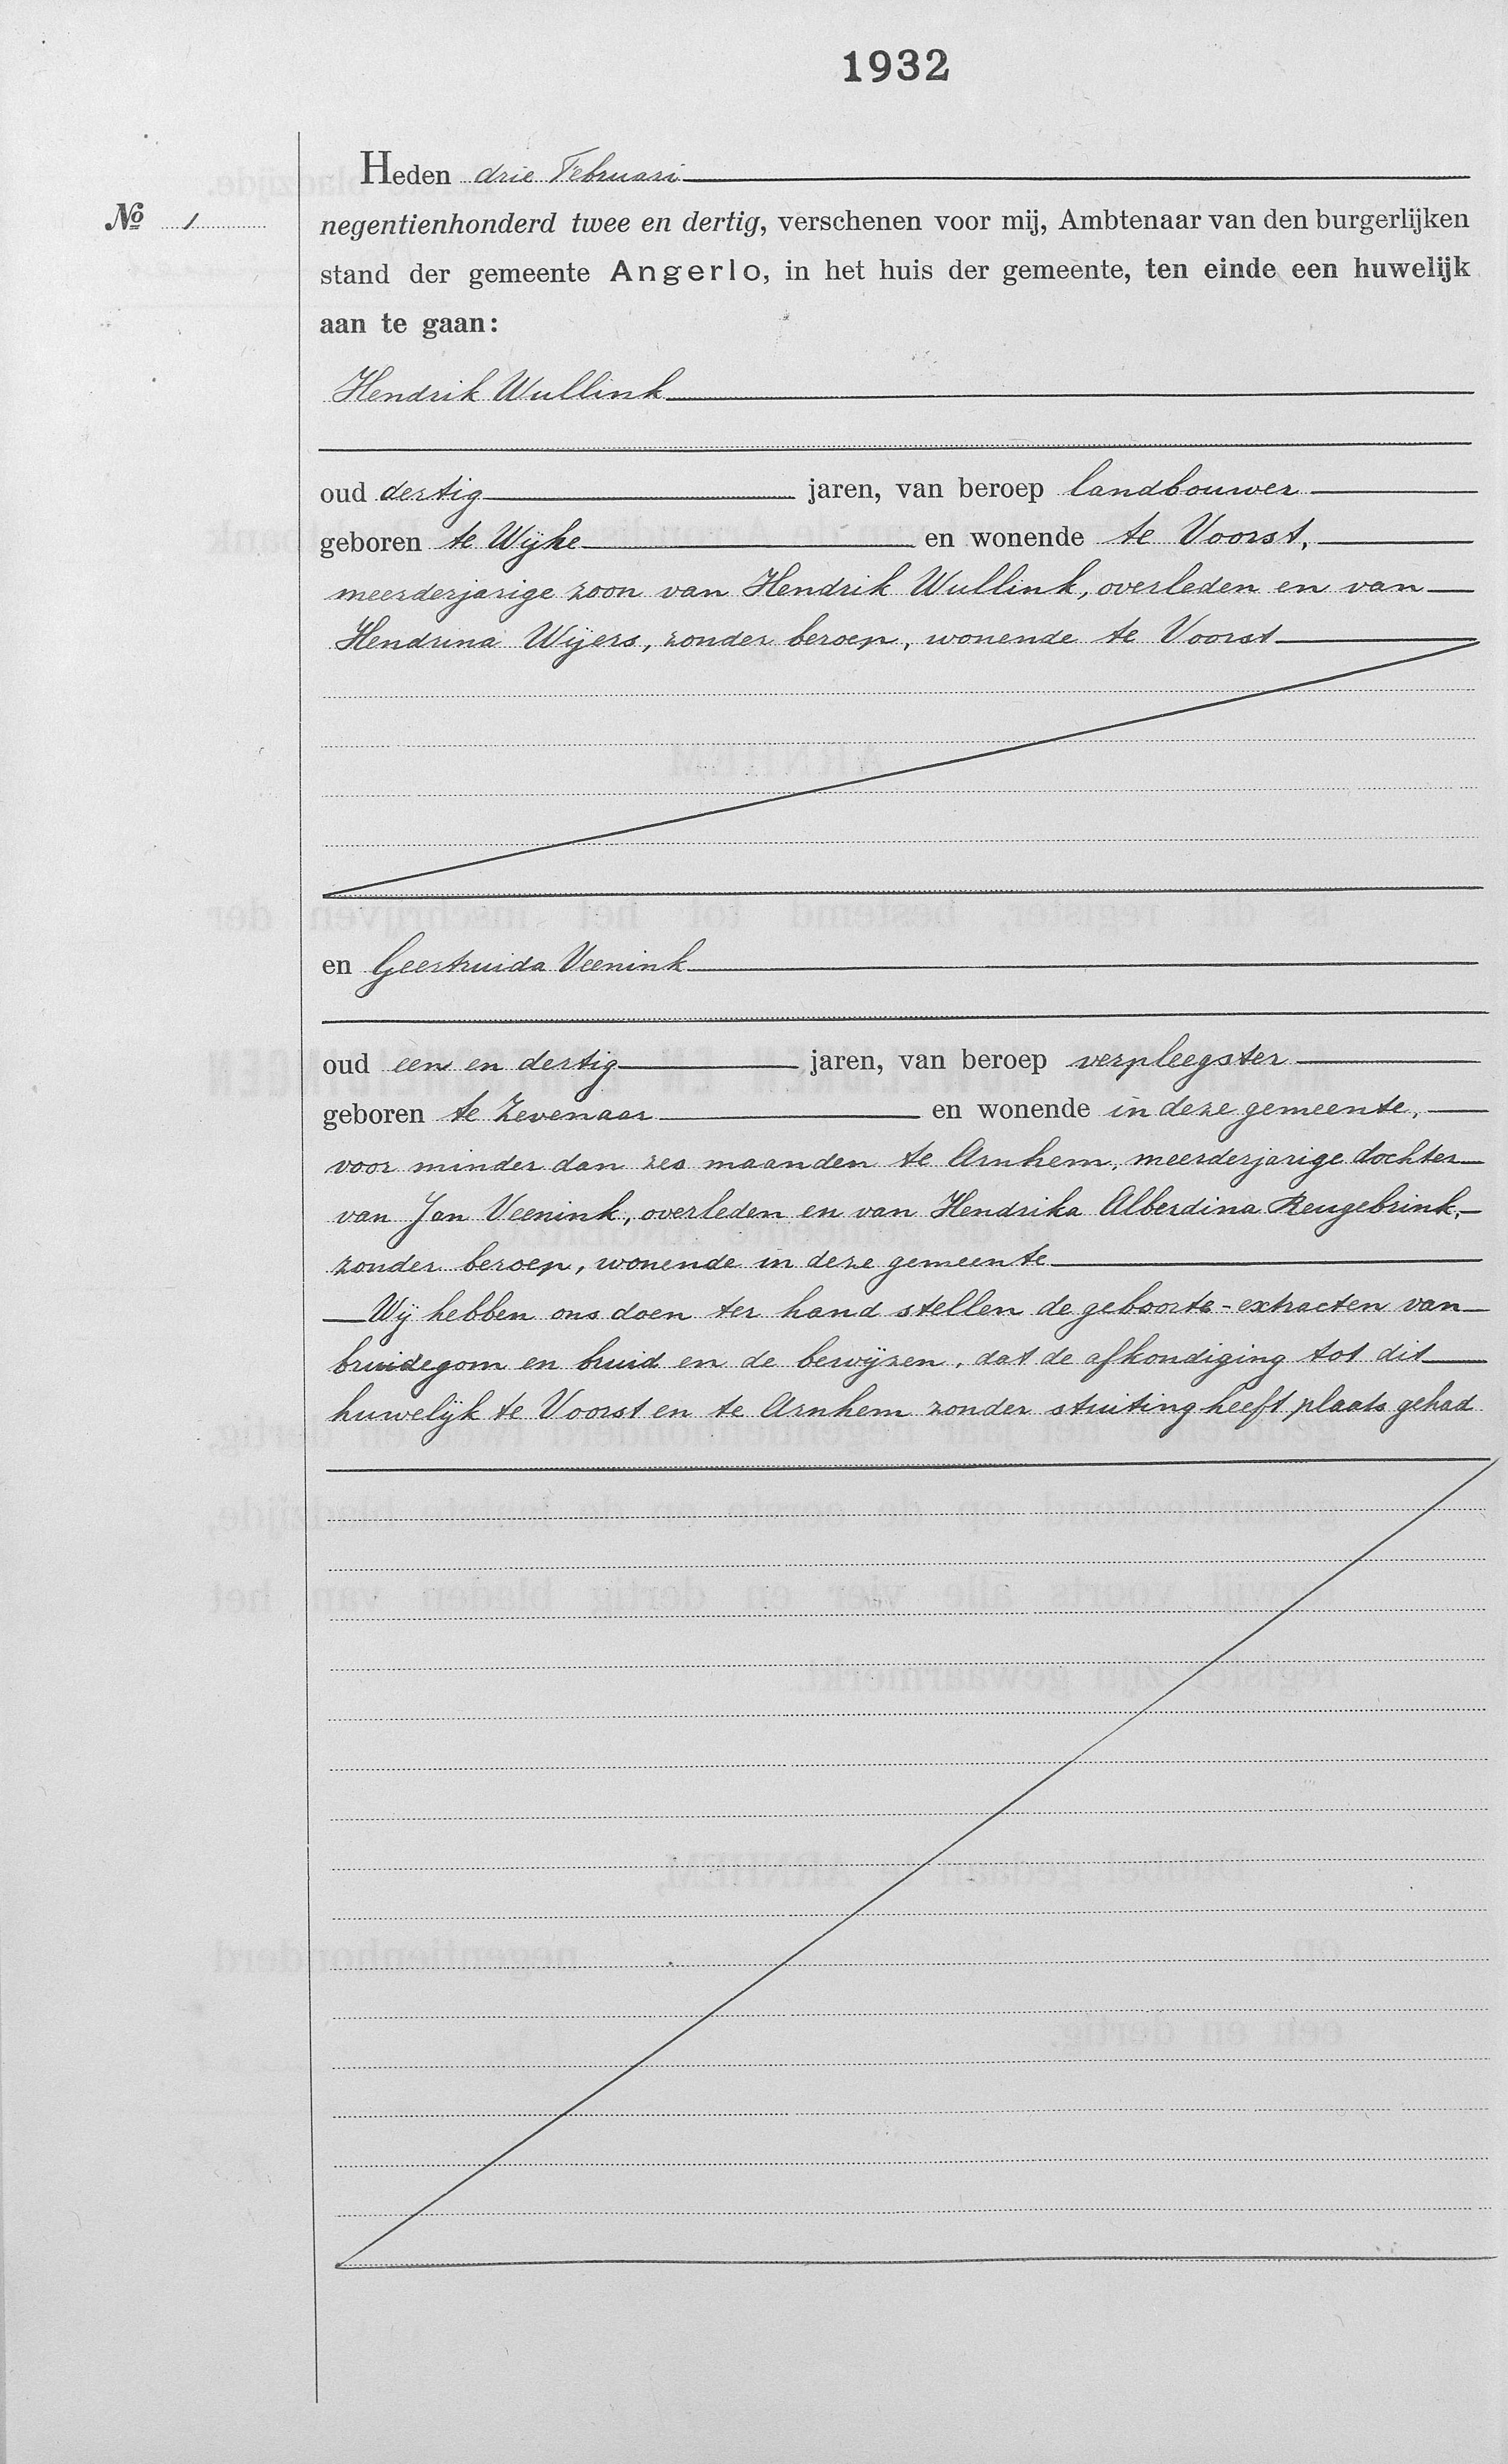 1932
Heden drie Februari
No 1
negentienhonderd twee en dertig, verschenen voor mij, Ambtenaar van den burgerlijken
stand der gemeente Angerlo, in het huis der gemeente, ten einde een huwelijk
aan te gaan:
Hendrik Wullink
oud dertig jaren, van beroep landbouwer
geboren te Wijhe en wonende te Voorst,
meerderjarige zoon van Hendrik Wullink, overleden en van
Hendrina Wijers, zonder beroep, wonende te Voorst
en Geertruida Veenink
oud een en dertig jaren, van beroep verpleegster
geboren te Zevenaar en wonende in deze gemeente,
voor minder dan zes maanden te Arnhem, meerderjarige dochter
van Jan Veenink, overleden en van Hendrika Alberdina Reugebrink,
zonder beroep, wonende in deze gemeente
Wij hebben ons doen ter hand stellen de geboorte-extracten van
bruidegom en bruid en de bewijzen, dat de afkondiging tot dit
huwelijk te Voorst en te Arnhem zonder stuiting heeft plaats gehad